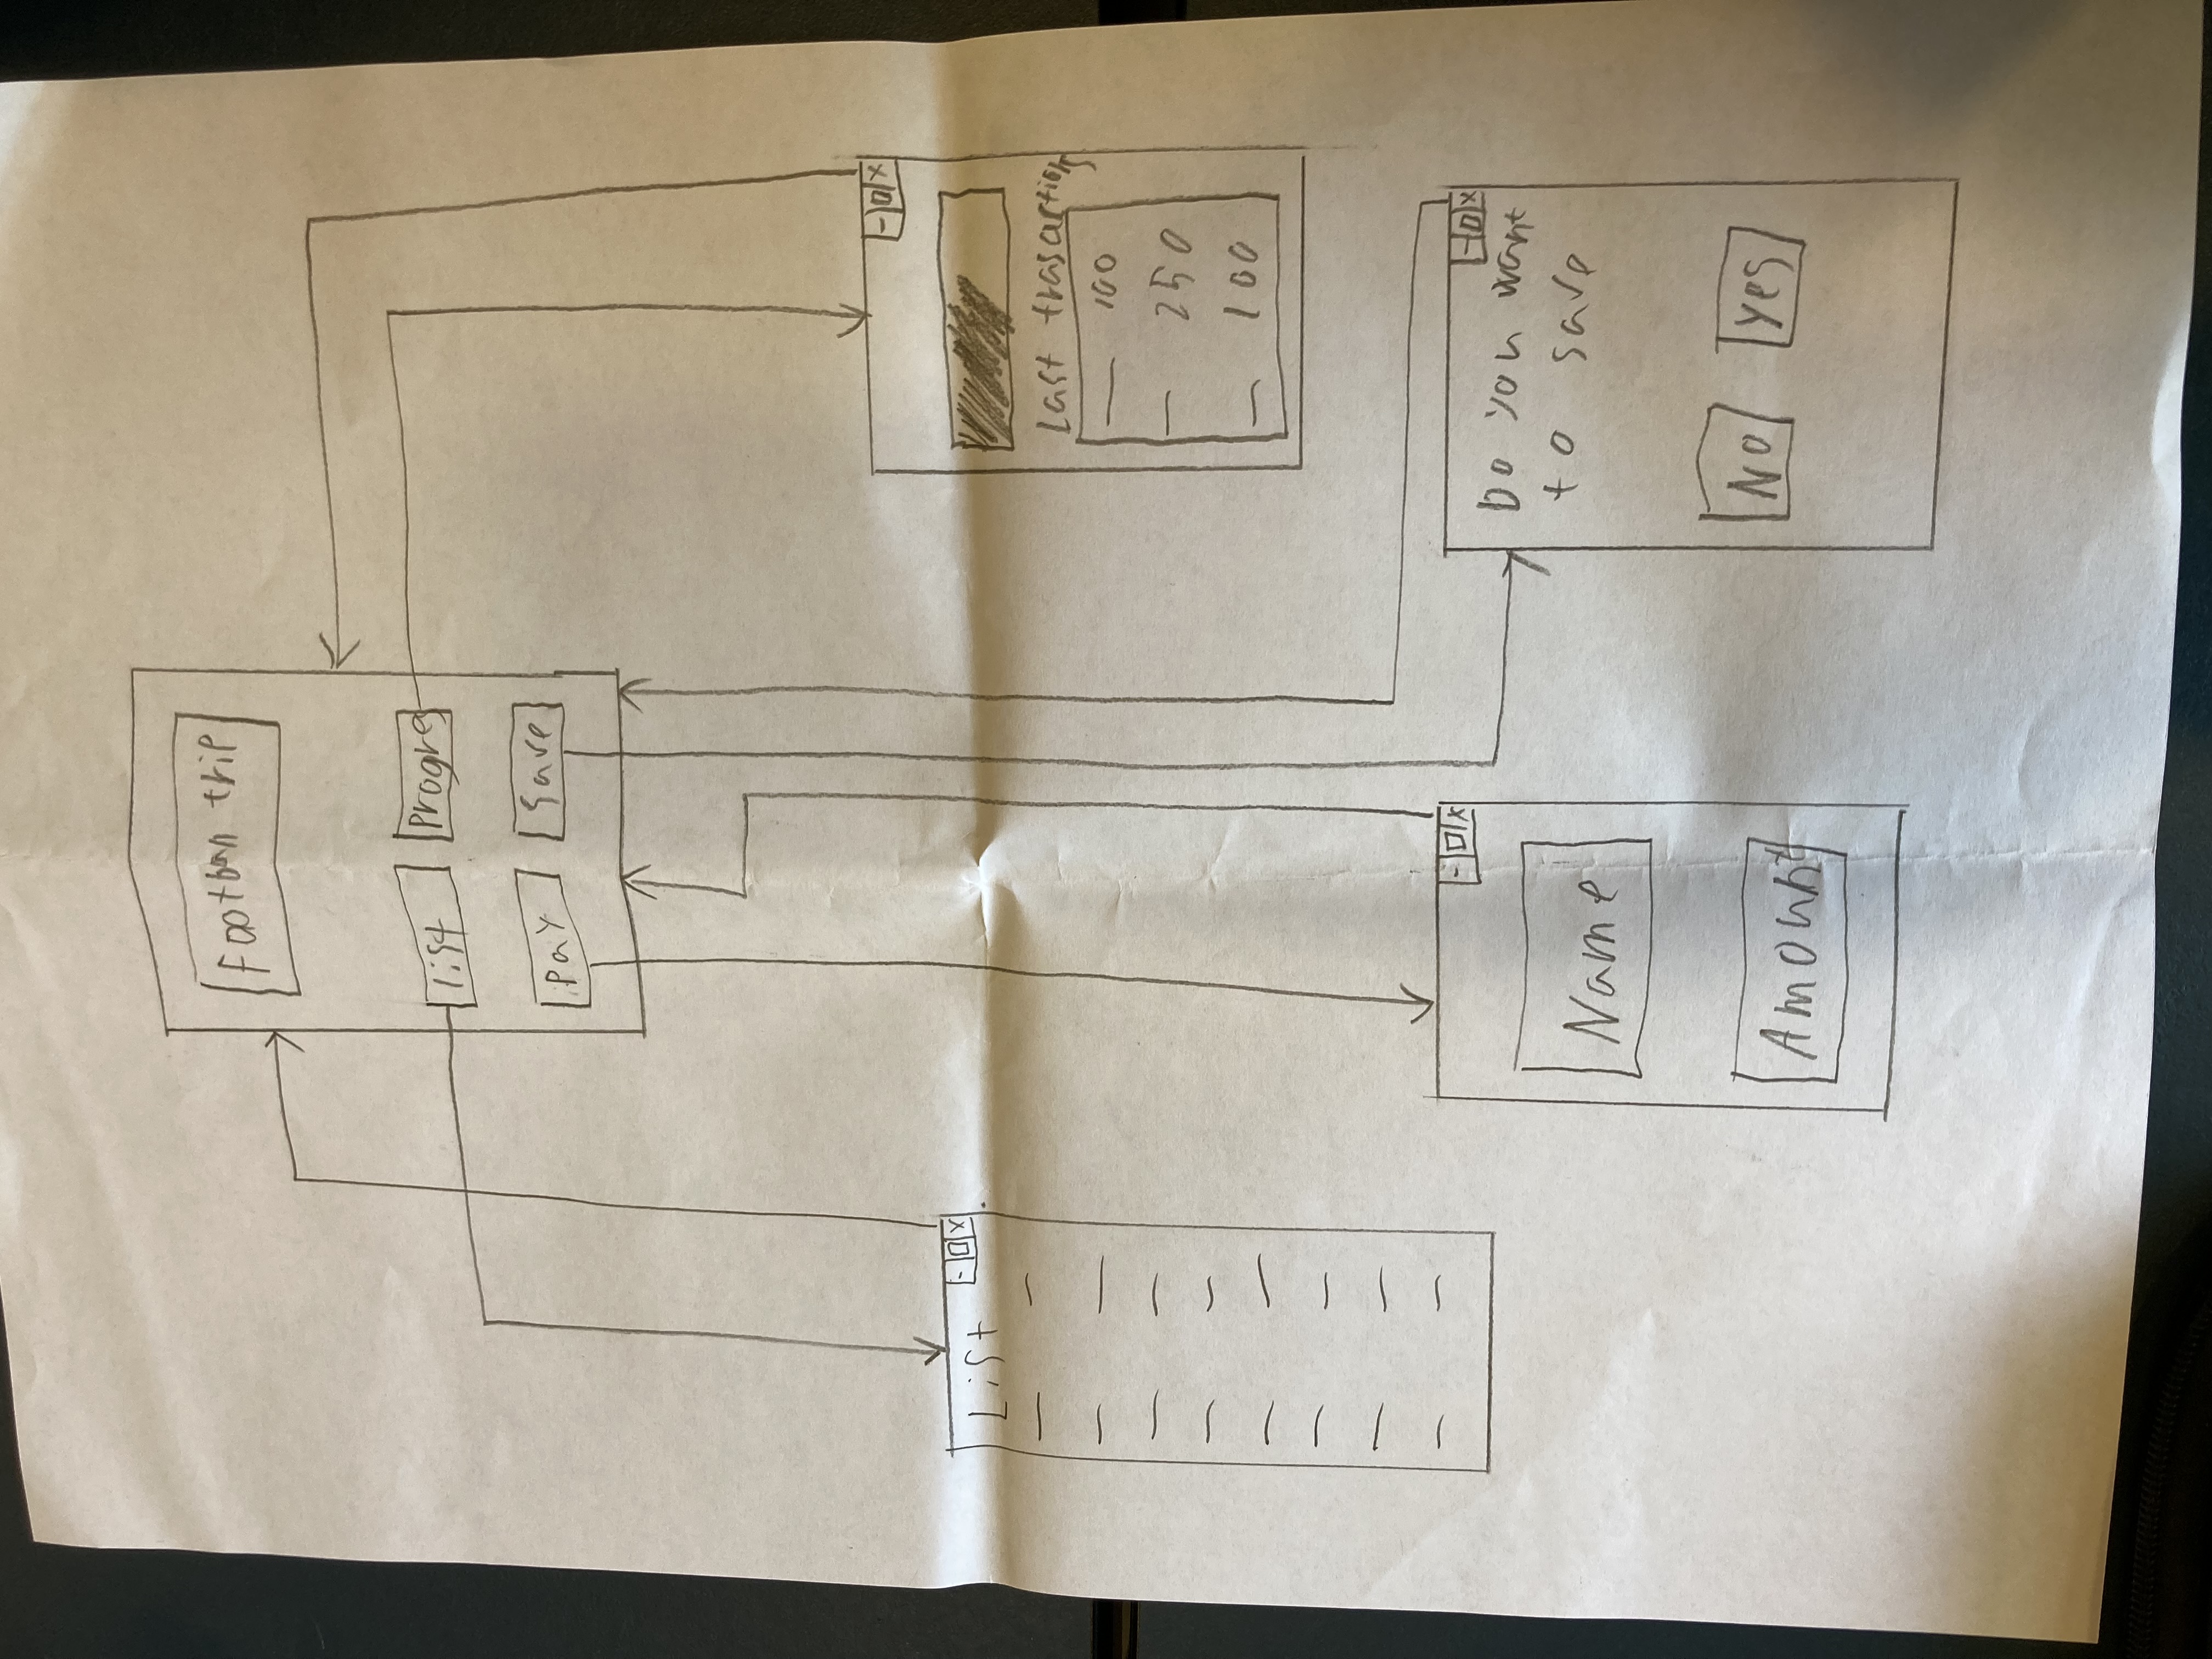 Football trip
list
Progres
Pay
Save
List
Last trasactions
100
250
100
Name
Amount
Do you want
to save
No
Yes